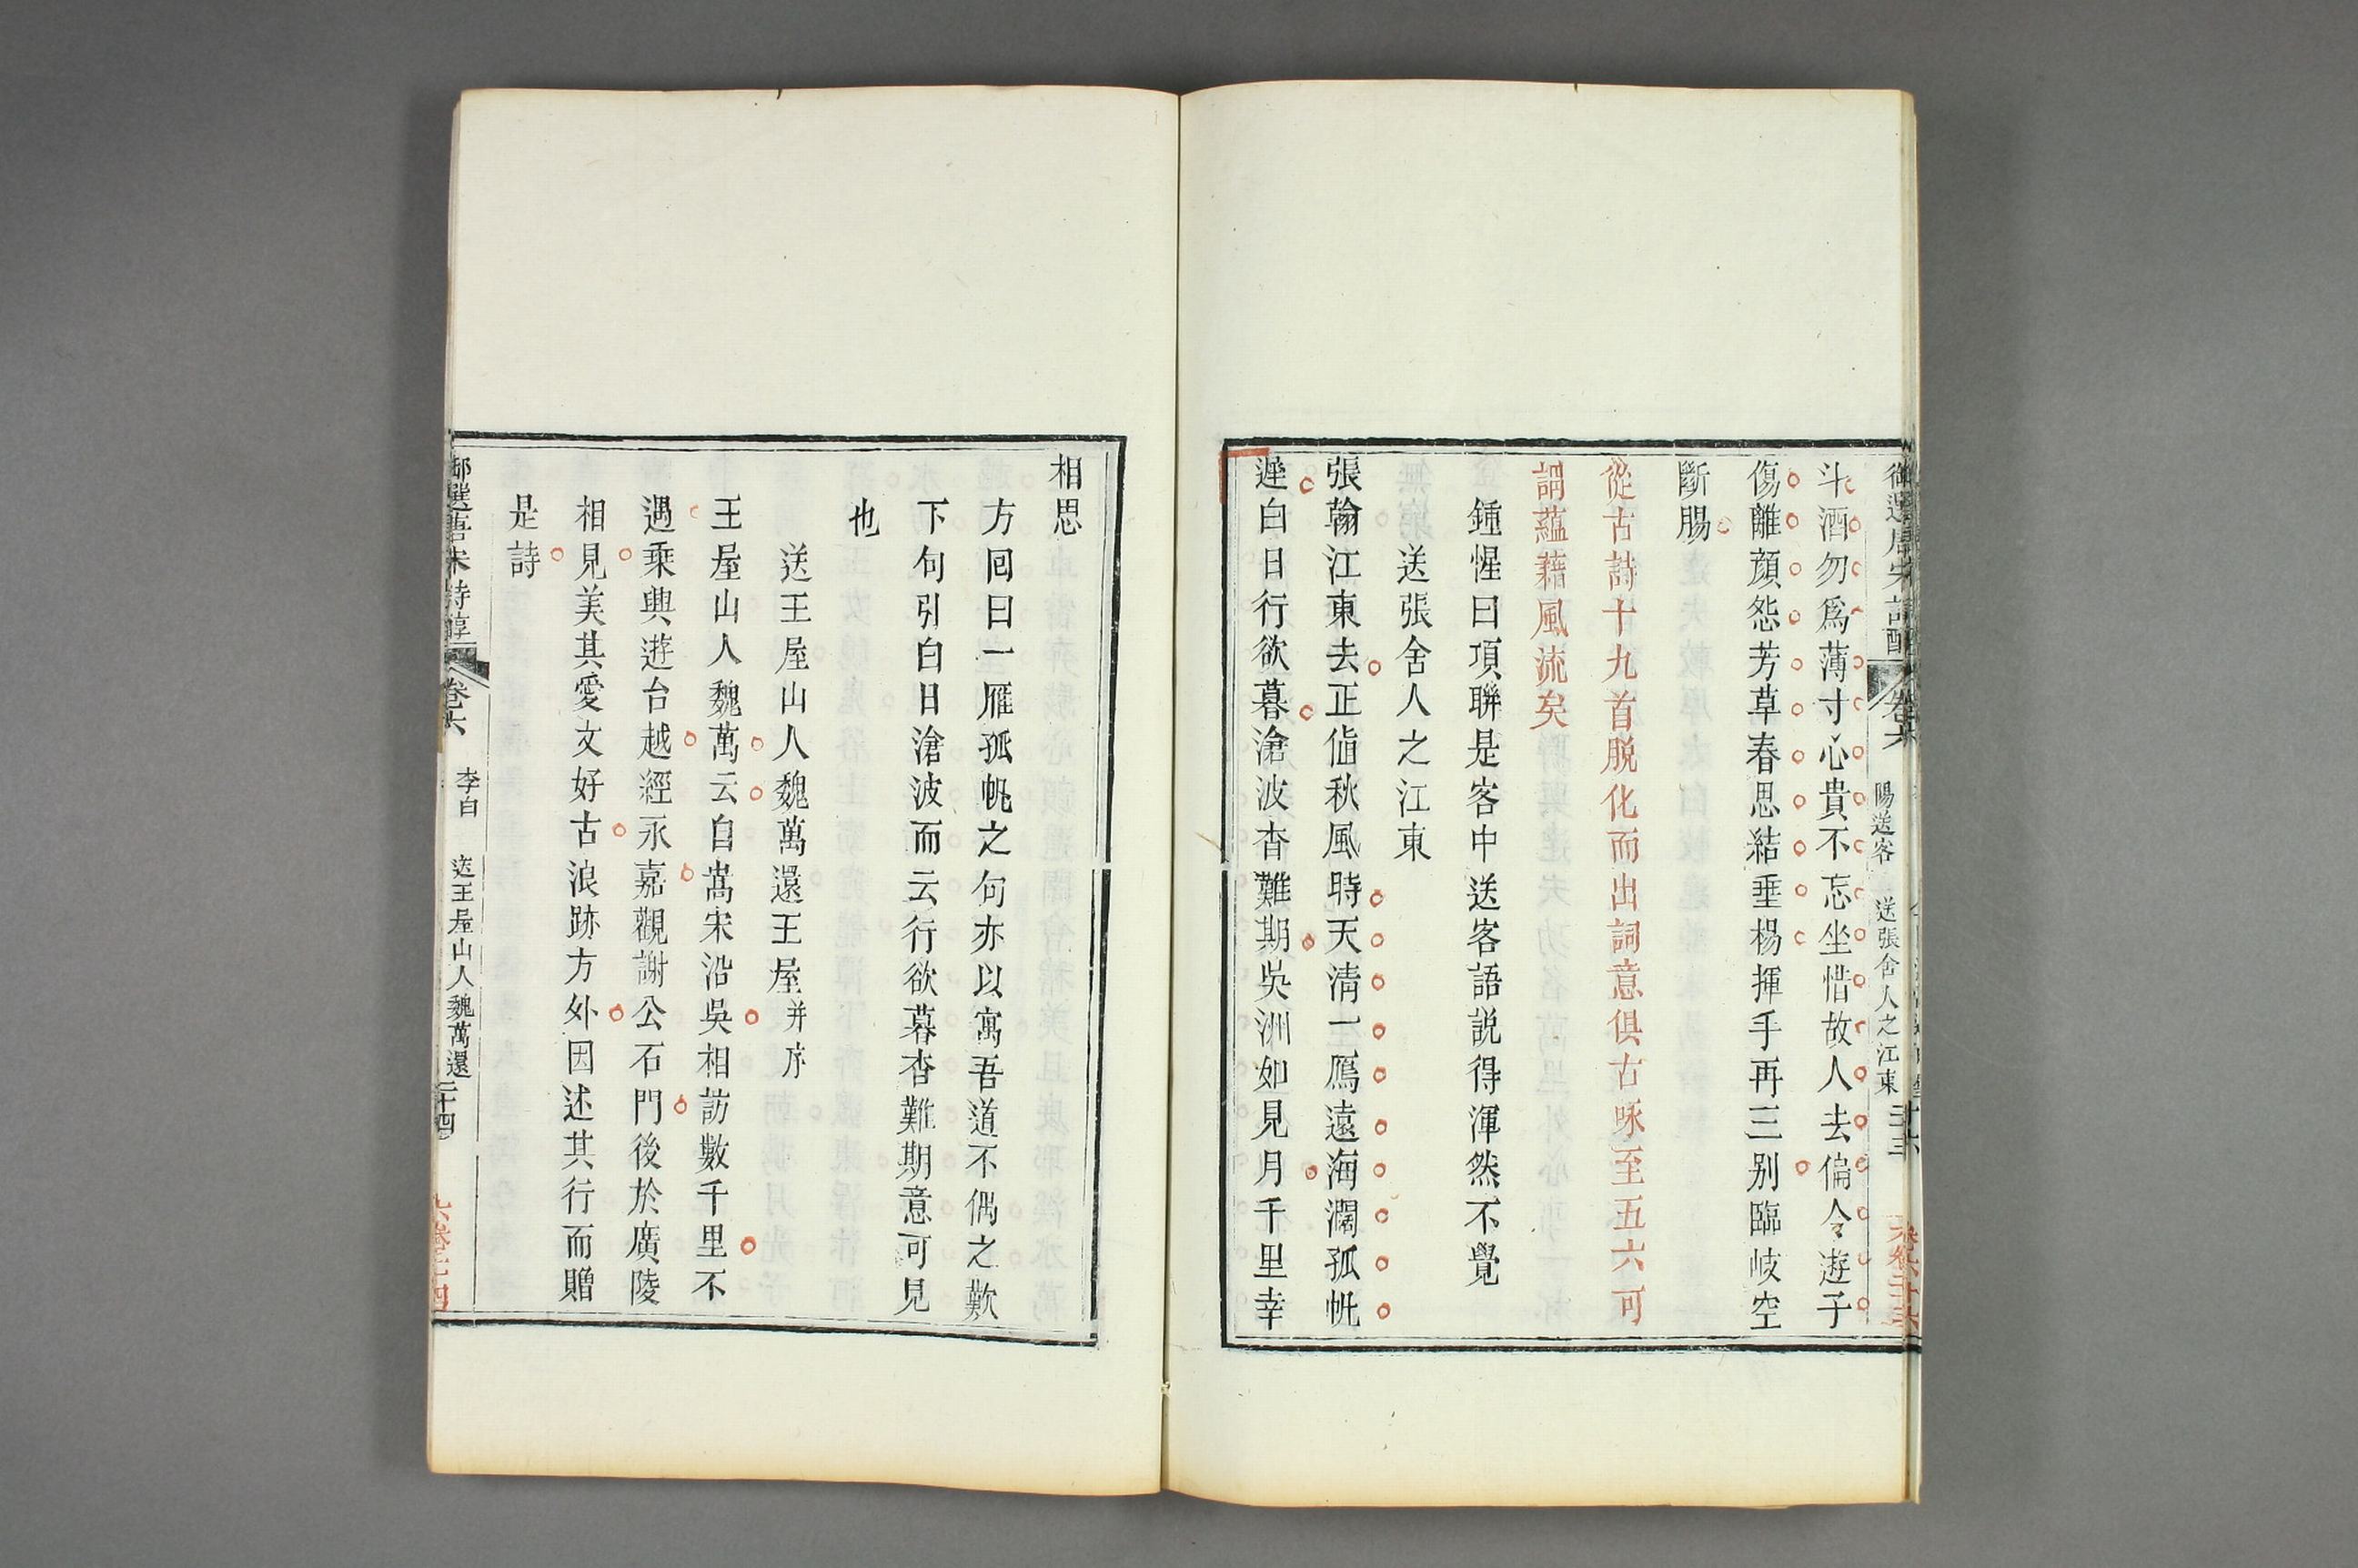 御選唐宋詩醇
卷六
陽送客
送張舍人之江東
斗酒勿爲薄寸心貴不忘坐惜故人去偏令遊子
傷離顏怨芳草春思結垂楊揮手再三别臨岐空
斷腸
從古詩十九首脱化而出詞意俱古咏至五六可
謂蘊藉風流矣
鍾惺曰項聯是客中送客語説得渾然不覺
送張舍人之江東
張翰江東去正値秋風時天清一鴈遠海濶孤帆
遲白日行欲暮滄波杳難期吳洲如見月千里幸
相思
方回曰一雁孤帆之句亦以寓吾道不偶之歎
下句引白日滄波而云行欲暮杳難期意可見
也
送王屋山人魏萬還王屋并序
王屋山人魏萬云自嵩宋沿吳相訪數千里不
遇乘興遊台越經永嘉觀謝公石門後於廣陵
相見美其愛文好古浪跡方外因述其行而贈
是詩
御選唐宋詩醇
卷六
李白
送王屋山人魏萬還
二十四
六卷二十四